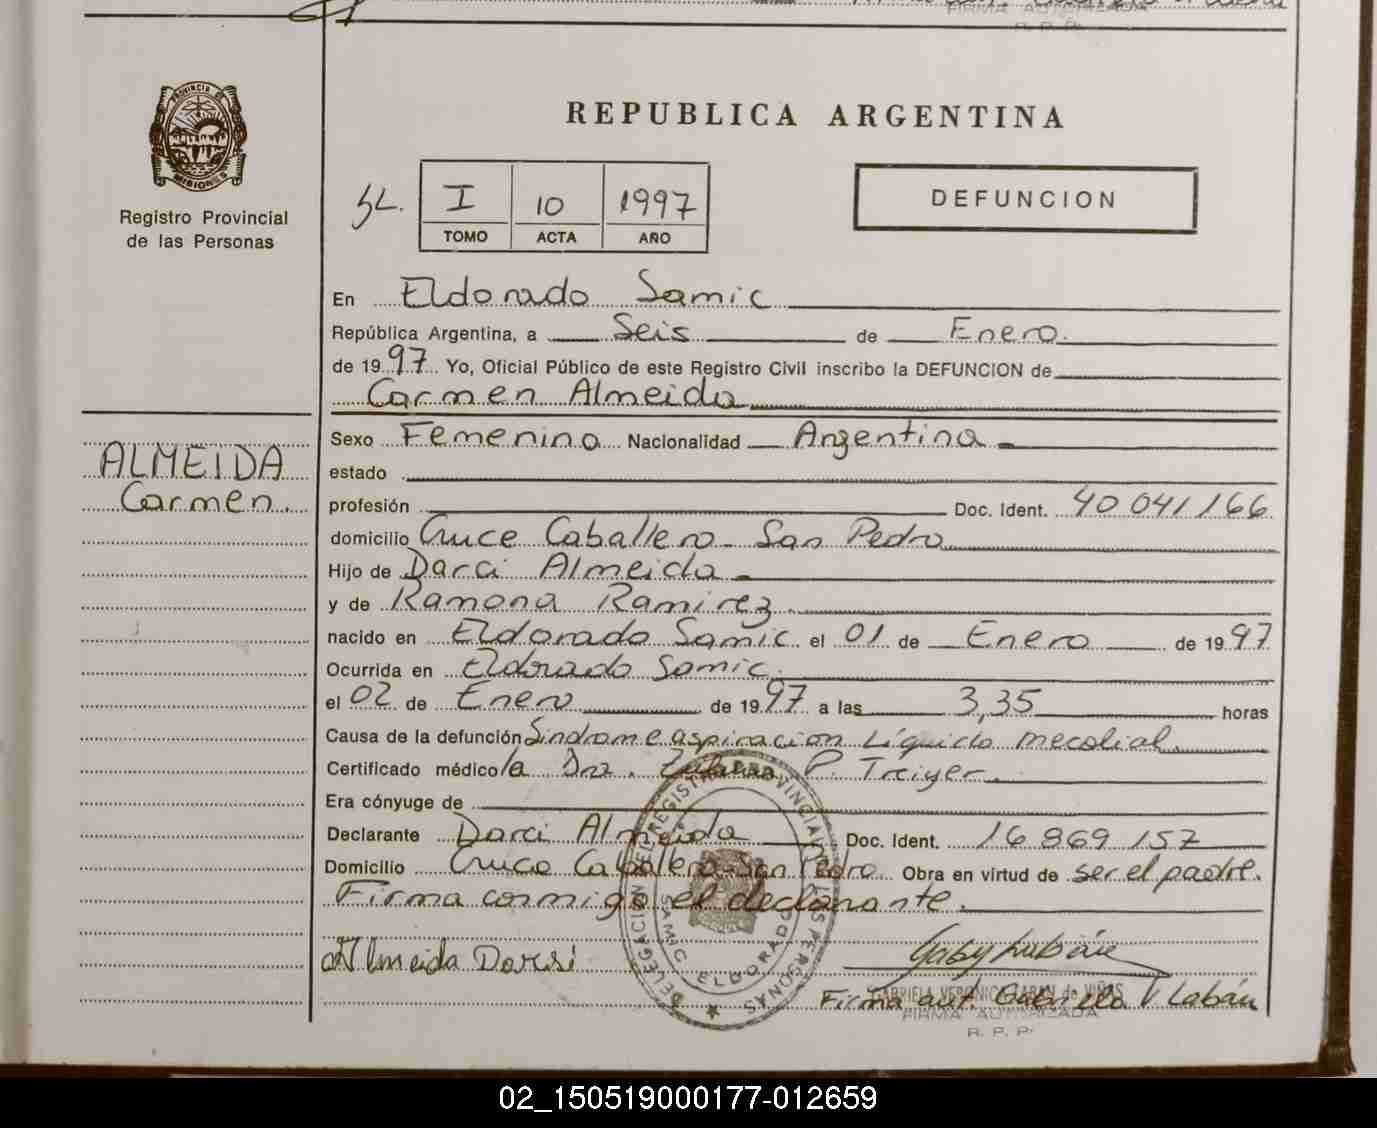 FIRMA AUTORIZADA
R. P. P.
PROVINCIA DE
MISIONES
Registro Provincial
de las Personas
REPUBLICA ARGENTINA
I 10 1997
TOMO ACTA AÑO
DEFUNCION
En Eldorado Samic
República Argentina, a Seis de Enero.
de 1997. Yo, Oficial Público de este Registro Civil inscribo la DEFUNCION de
Carmen Almeida
ALMEIDA
Carmen.
Sexo Femenino Nacionalidad Argentina
estado
profesión Doc. Ident. 40 041 166
domicilio Cruce Caballero - San Pedro
Hijo de Darci Almeida
y de Ramona Ramirez.
nacido en Eldorado Samic. el 01 de Enero de 1997
Ocurrida en Eldorado Samic.
el 02 de Enero de 1997 a las 3,35 horas
Causa de la defunción Sindrome aspiracion Líquido mecolial.
Certificado médico la Dra. P. Treiyer.
Era cónyuge de
Declarante Darci Almeida Doc. Ident. 16 869 157
Domicilio Cruce Caballero - San Pedro Obra en virtud de ser el padre.
Firma conmigo el declarante.
Almeida Darsi
Firma aut. Gabriela V Labán
GABRIELA VERONICA LABAN de VIÑAS
FIRMA AUTORIZADA
R. P. P.
DELEGACION DEL REGISTRO PROVINCIAL DE LAS PERSONAS
SAMIC ELDORADO
02_150519000177-012659